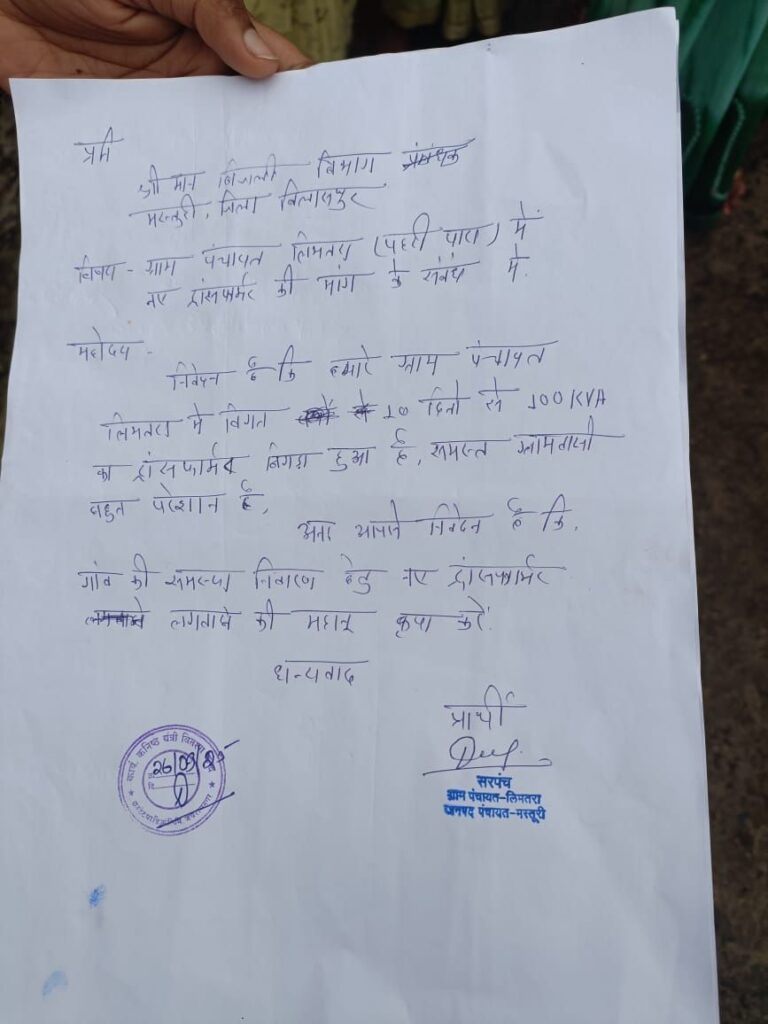 प्रति
श्री मान बिजली विभाग प्रबंधक
मस्तुरी, जिला बिलासपुर
विषय - ग्राम पंचायत लिमतरा (पहरी पारा) में
नए ट्रांसफार्मर की मांग के संबंध में.
महोदय -
निवेदन है कि हमारे ग्राम पंचायत
लिमतरा में विगत 10 दिनो से 100 KVA
का ट्रांसफार्मर बिगड़ा हुआ है, समस्त ग्रामवासी
बहुत परेशान है,
अतः आपसे निवेदन है कि,
गांव की समस्या निवारण हेतु नए ट्रांसफार्मर
लगवाने की महान कृपा करें.
धन्यवाद
प्रार्थी
सरपंच
ग्राम पंचायत-लिमतरा
जनपद पंचायत-मस्तूरी
कार्य. कनिष्ठ यंत्री वितरण
26/09/25